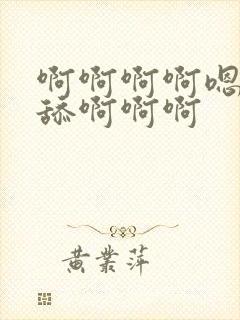 啊啊啊啊嗯
舔啊啊啊
黄业萍